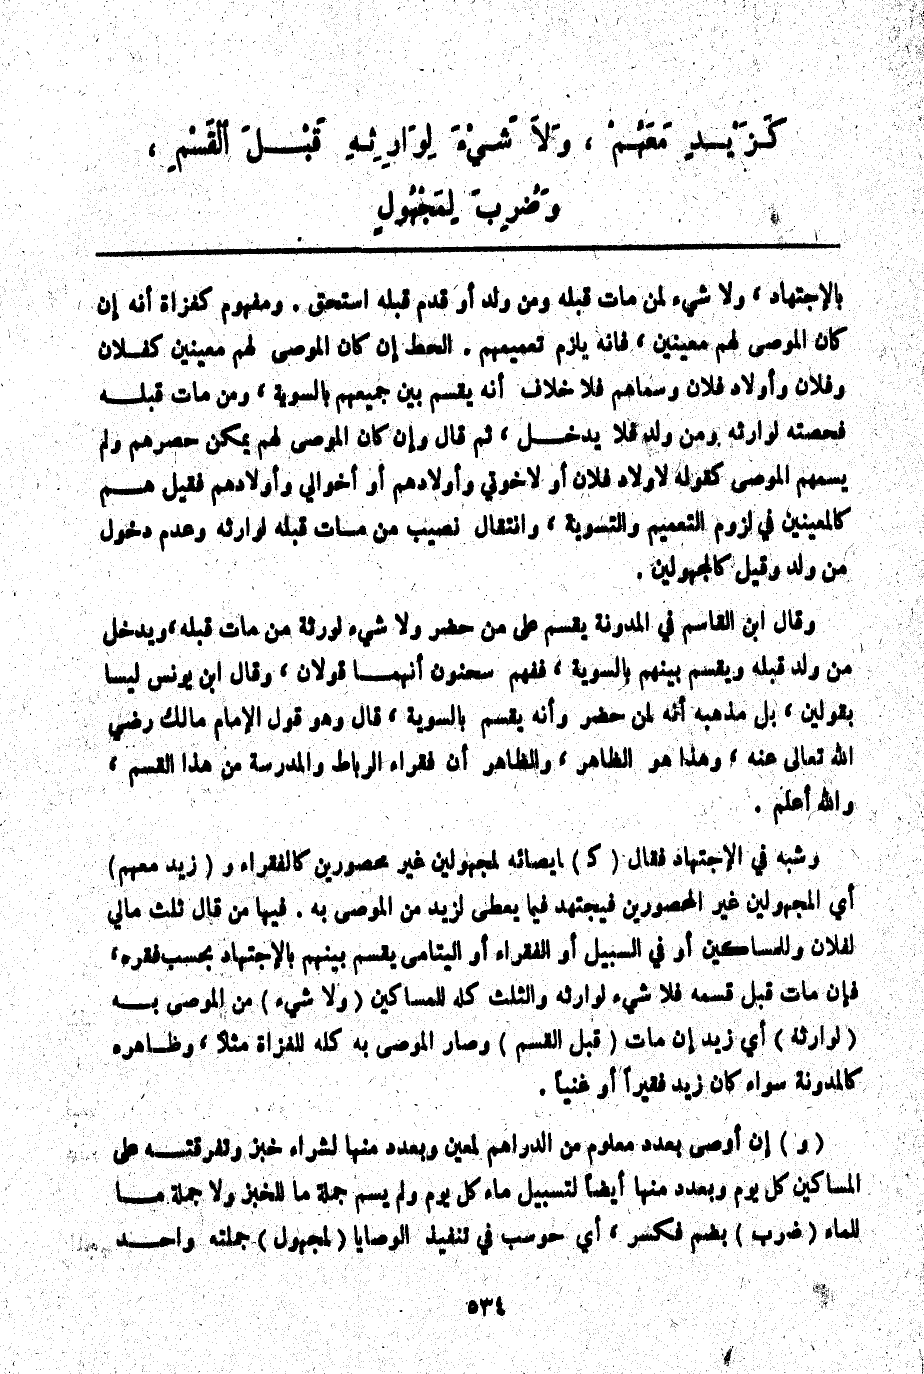 كَزَيْدٍ مَعَهُمْ ، وَلاَ شَيْءَ لِوَارِثِهِ قَبْلَ الْقَسْمِ ،
وَضُرِبَ لِمَجْهُولٍ
بالإجتهاد ، ولا شيء لمن مات قبله ومن ولد أو قدم قبله استحق . ومفهوم كغزاة أنه إن
كان الموصى لهم معينين ، فانه يلزم تعميمهم . الحط إن كان الموصى لهم معينين كفلان
وفلان وأولاد فلان وسماهم فلا خلاف أنه يقسم بين جميعهم بالسوية ، ومن مات قبله
فحصته لوارثه ومن ولد فلا يدخل ، ثم قال وإن كان الموصى لهم يمكن حصرهم ولم
يسمهم الموصى كقوله لاولاد فلان أو لاخوتي وأولادهم أو أخوالي وأولادهم فقيل هم
كالمعينين في لزوم التعميم والتسوية ، وانتقال نصيب من مات قبله لوارثه وعدم دخول
من ولد وقيل كالمجهولين .
وقال ابن القاسم في المدونة يقسم على من حضر ولا شيء لورثة من مات قبله،ويدخل
من ولد قبله ويقسم بينهم بالسوية ، ففهم سحنون أنهما قولان ، وقال ابن يونس ليسا
بقولين ، بل مذهبه أنه لمن حضر وأنه يقسم بالسوية ، قال وهو قول الإمام مالك رضي
الله تعالى عنه ، وهذا هو الظاهر ، والظاهر أن فقراء الرباط والمدرسة من هذا القسم ،
والله أعلم .
وشبه في الإجتهاد فقال ( ك ) ايصائه لمجهولين غير محصورين كالفقراء و ( زيد معهم)
أي المجهولين غير المحصورين فيجتهد فيما يعطى لزيد من الموصى به . فيها من قال ثلث مالي
لفلان وللمساكين أو في السبيل أو الفقراء أو اليتامى يقسم بينهم بالإجتهاد بحسب فقره،
فإن مات قبل قسمه فلا شيء لوارثه والثلث كله للمساكين ( ولا شيء ) من الموصى به
( لوارثه ) أي زيد إن مات ( قبل القسم ) وصار الموصى به كله للغزاة مثلاً ، وظاهره
كالمدونة سواء كان زيد فقيراً أو غنياً .
( و ) إن أوصى بعدد معلوم من الدراهم لمعين وبعدد منها لشراء خبز وتفرقته على
المساكين كل يوم وبعدد منها أيضاً لتسبيل ماء كل يوم ولم يسم جملة ما للخبز ولا جملة ما
للماء ( ضرب ) بضم فكسر ، أي حوسب في تنفيذ الوصايا ( لمجهول ) جملته واحد
٥٣٤